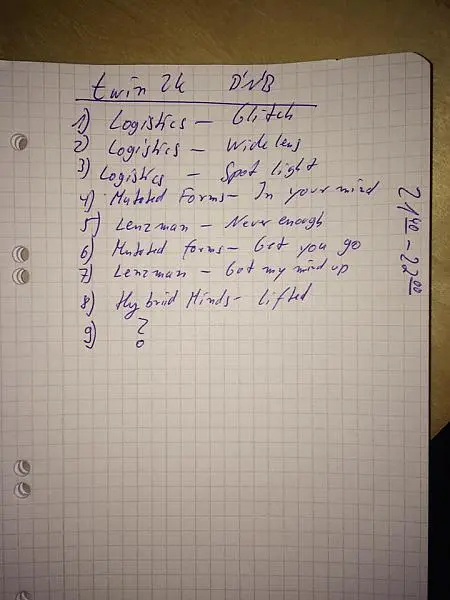 twin 2k D'N'B
1) Logistics - Glitch
2) Logistics - Wide lens
3) Logistics - Spot light
4) Mutated Forms - In your mind
5) Lenzman - Never enough
6) Mutated forms - Get you go
7) Lenzman - Got my mind up
8) Hybrid Minds - Lifted
9) ?
21:40 - 22:00